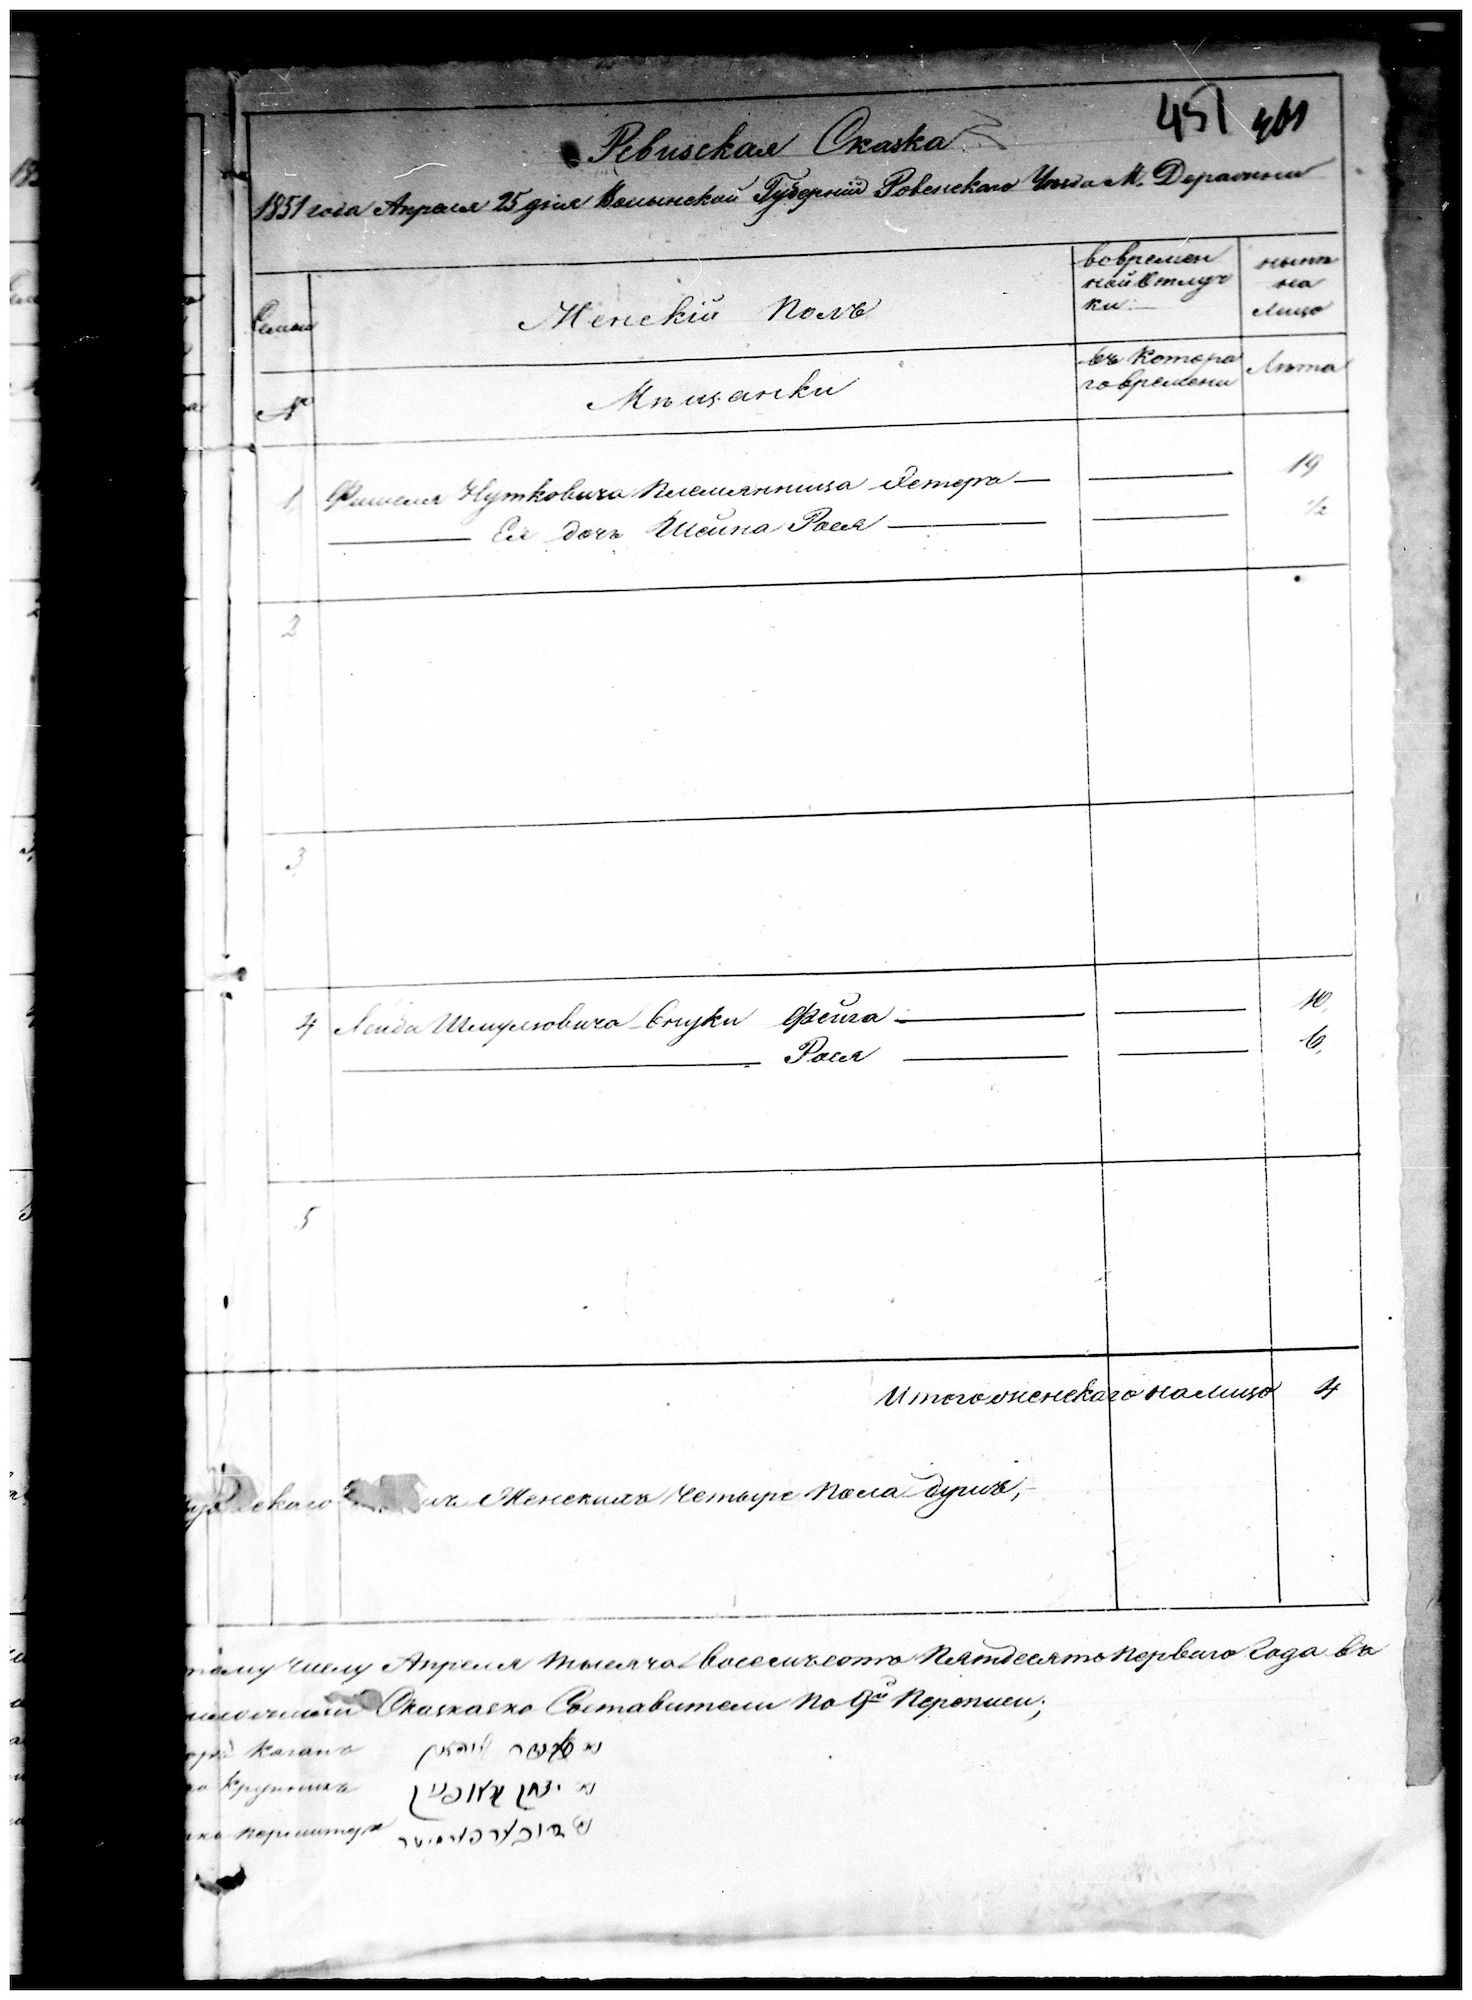 451
Ревиская Сказка
1851 года Апреля 25 дня Волынской Губернии Ровенского Уезда М. Деражни
Семьи
Женскій Полъ
во времен
ной отлуч
ки
нынѣ
на
лицо
№
Мѣщанки
съ котора
го времени
Лѣта
1 Фишеля Нутковича племянница Эстера 19
Ея дочь Шейна Рася ½
2
3
4 Лейба Шмулювича внуки Фейга 10
Рася 6
5
Итого женскаго на лицо 4
Женскихъ четыре пола душъ,
числу Апреля тысяча восемьсотъ пятдесятъ перваго года въ
Составители по 9й переписи;
Каганъ
Крупникъ
יצחק קרופניק